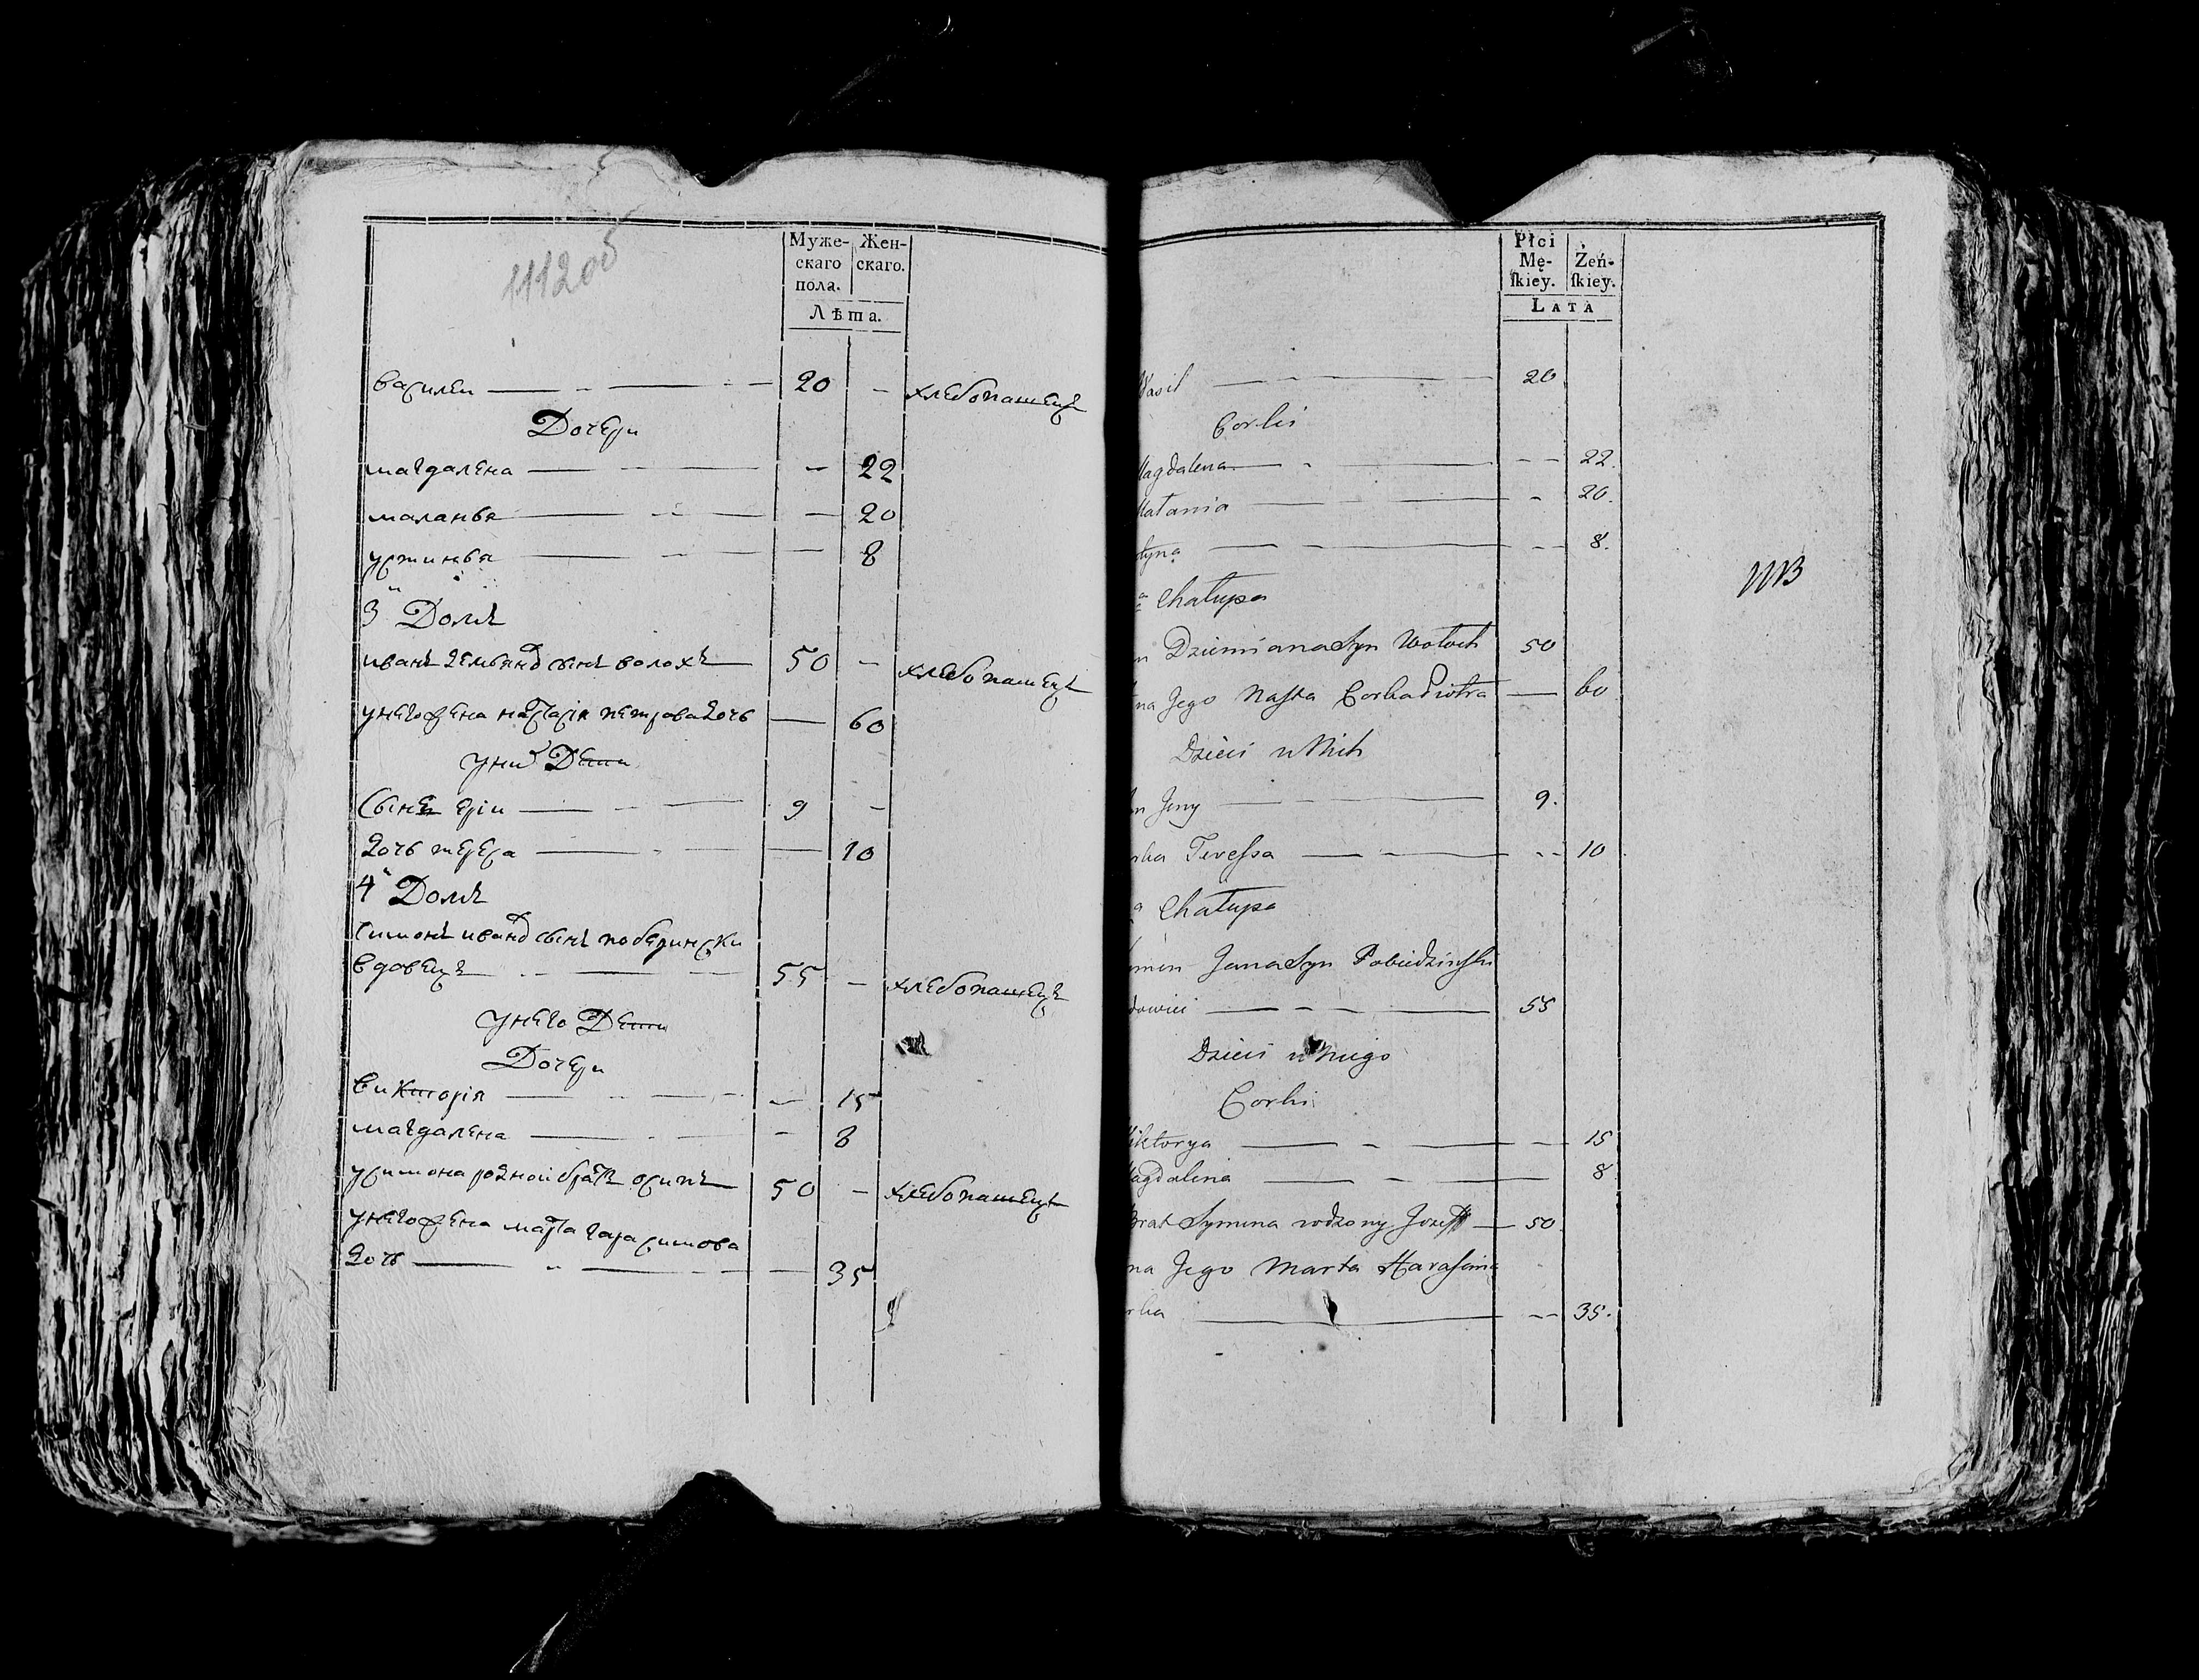 1112об
Муже-
скаго
пола.
Жен-
скаго.
Лѣта.
василеи 20 - хлебопашецъ
Дочери
магдалена - 22
маланья - 20
устинья - 8
3й Домъ
иванъ демьяновъ сынъ волохъ 50 - хлебопашецъ
у него жена настасія петрова дочь - 60
у них Дети
Сынъ ерiи 9 -
дочь тереса - 10
4й Домъ
Симонъ ивановъ сынъ победински
вдовецъ 55 - хлебопашецъ
у него Дети
Дочери
викторія - 15
магдалена - 8
у симона родной братъ осипъ 50 - хлебопашецъ
у него жена марта гарасимова
дочь - 35
Płci
Mę-
ſkiey.
Żeń-
ſkiey.
LATA
Wasil 20
Corki
Magdalena - 22.
Małania - 20.
tyna - 8.
a Chałupa
n Dziemiana Syn Wołoch 50
na Jego Nasta Corka Piotra - 60
Dzieci u Nich
n Jerzy 9.
rka Teressa - 10
a Chałupa
ymon Jana Syn Pobiedzinski
dowiec 55
Dzieci u Niego
Corki
Wiktorya - 15
Magdalena - 8
Brat Symona rodzony Jozeff 50.
na Jego Marta Harasima
rka - 35.